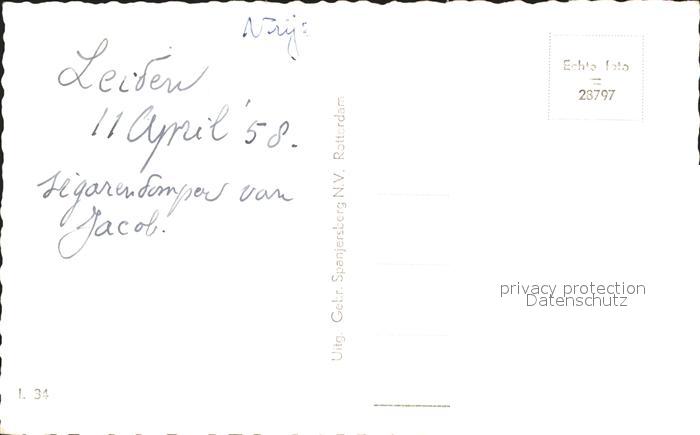 Vrij:
Leiden
11 April '58.
sigarendamper van
Jacob.
Echte foto
28797
Uitg. Gebr. Spanjersberg N.V. Rotterdam
privacy protection
Datenschutz
L. 34